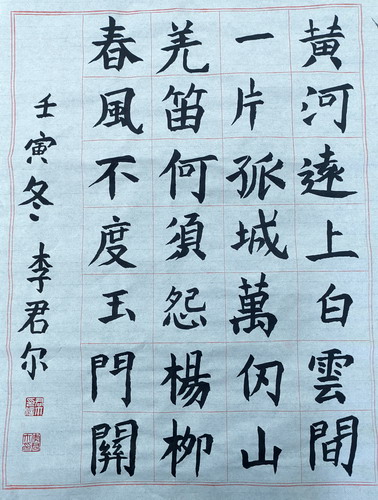 黄河遠上白雲間
一片孤城萬仞山
羌笛何須怨楊柳
春風不度玉門關
壬寅冬李君尔